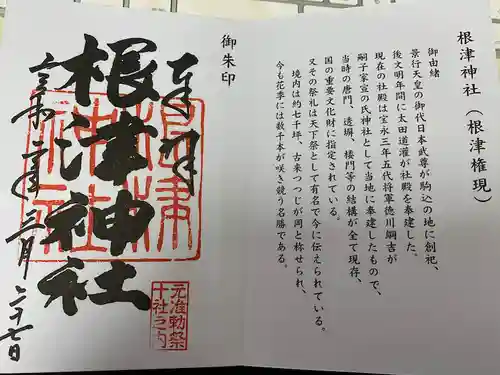 根津神社(根津権現)
御由緒
景行天皇の御代日本武尊が駒込の地に創祀、
後文明年間に太田道灌が社殿を奉建した。
現在の社殿は宝永三年五代将軍徳川綱吉が
嗣子家宣の氏神社として当地に奉建したもので、
当時の唐門、透塀、楼門等の結構が全て現存、
国の重要文化財に指定されている。
又その祭礼は天下祭として有名で今に伝えられている。
境内は約七千坪、古来つつじが岡と称せられ、
今も花季には数千本が咲き競う名勝である。
御朱印
奉拝
根津神社
令和二年三月二十七日
根津神社
元准勅祭
十社之内